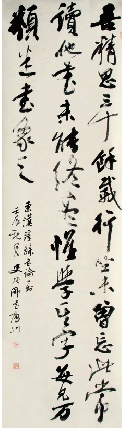 吾精思三十餘載行坐未曾忘此常
讀他書未能終盡惟學其字每見万
類悉書象之
東漢鍾繇書論一則